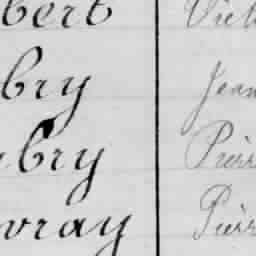 bert Vict
bry Jean
bry Pierr
vray Pierr